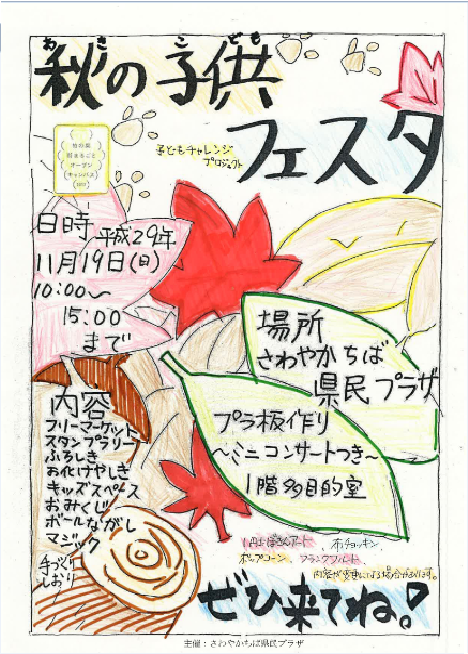 あき こども
秋の子供
フェスタ
子どもチャレンジ
プロジェクト
オープン
キャンパス
日時
平成29年
11月19日(日)
10:00〜
15:00
まで
場所
さわやかちば
県民プラザ
プラ板作り
〜ミニコンサートつき〜
1階多目的室
内容
フリーマーケット
スタンプラリー
ふろしき
お化けやしき
キッズスペース
おみくじ
ボールながし
マジック
手づくり
しおり
布チョッキン
ポップコーン、フランクフルト
内容が変更になる場合があります。
ぜひ来てね!
主催:さわやかちば県民プラザ